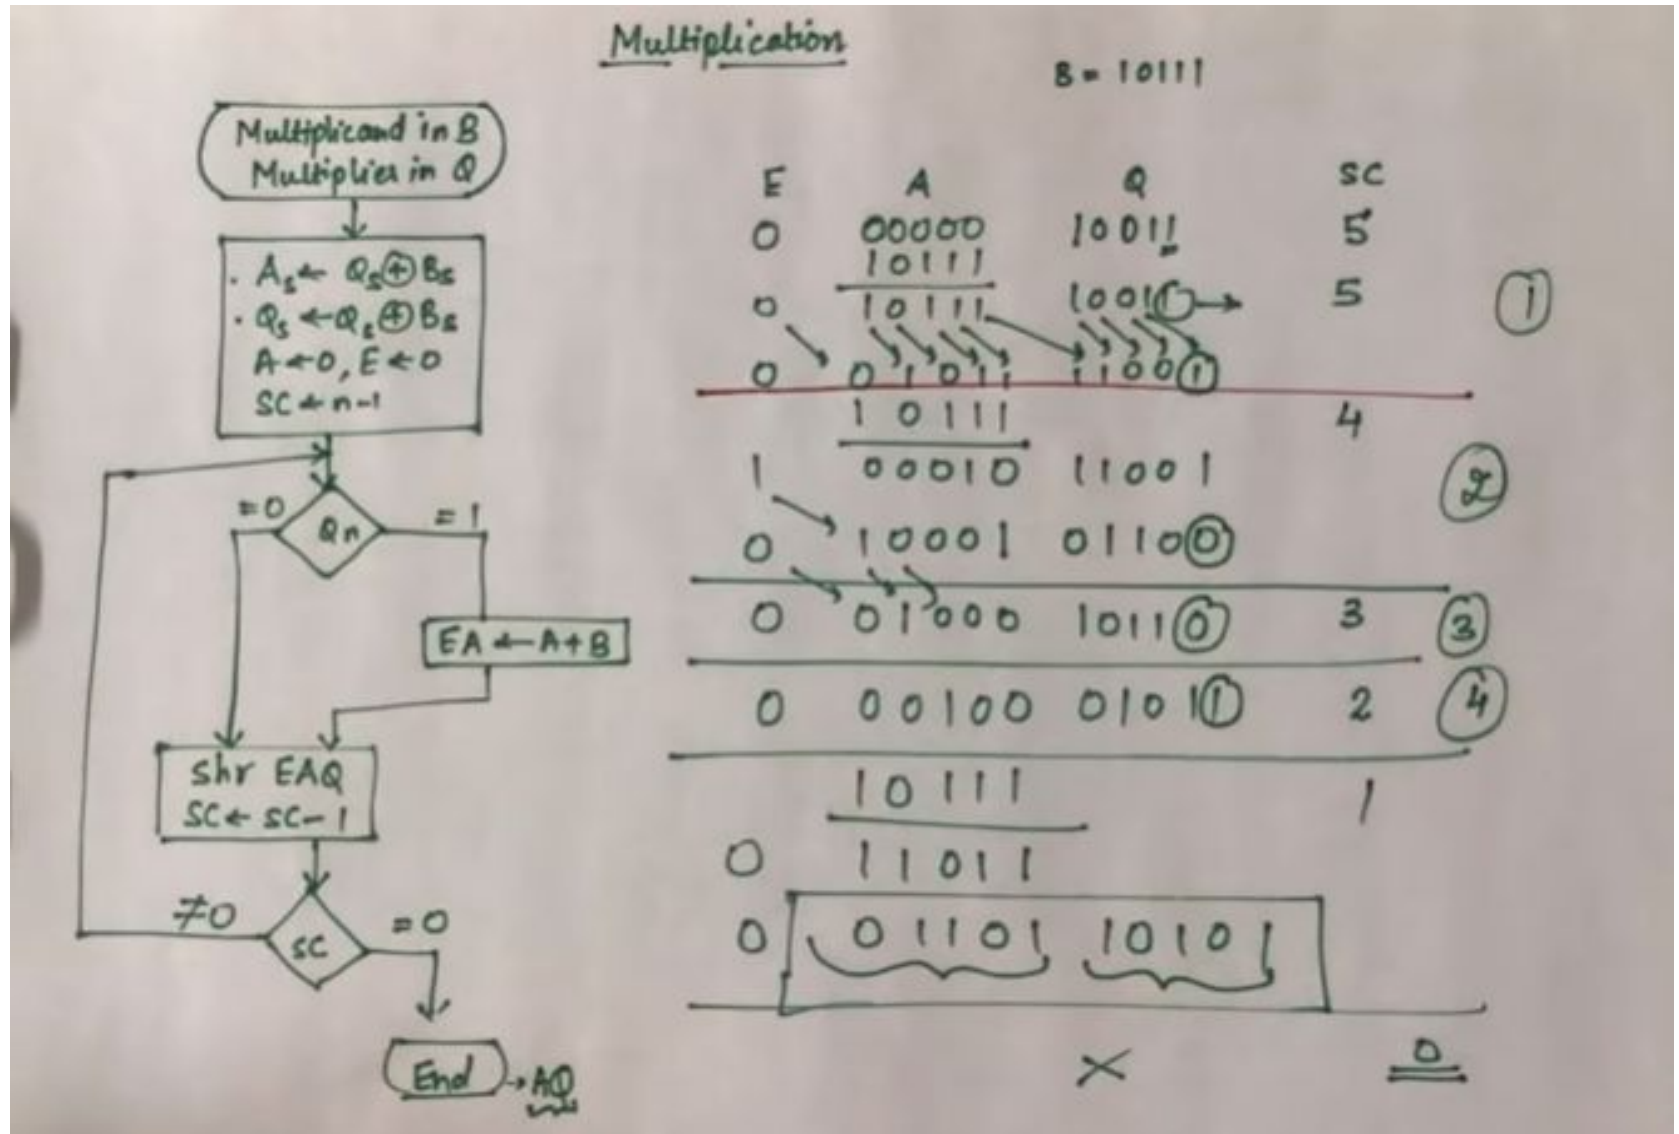 Multiplication
B = 10111
Multiplicand in B
Multiplier in Q
. As ← Qs ⊕ Bs
. Qs ← Qs ⊕ Bs
A ← 0, E ← 0
SC ← n-1
=0
Qn
=1
EA ← A+B
Shr EAQ
SC ← SC-1
≠0
SC
=0
End → AQ
E A Q SC
0 00000 10011 5
10111
0 10111 10011 → 5 1
0 01011 11001
10111 4
1 00010 11001 2
0 10001 01100
0 01000 10110 3 3
0 00100 01011 2 4
10111 1
0 11011
0 01101 10101
× 0